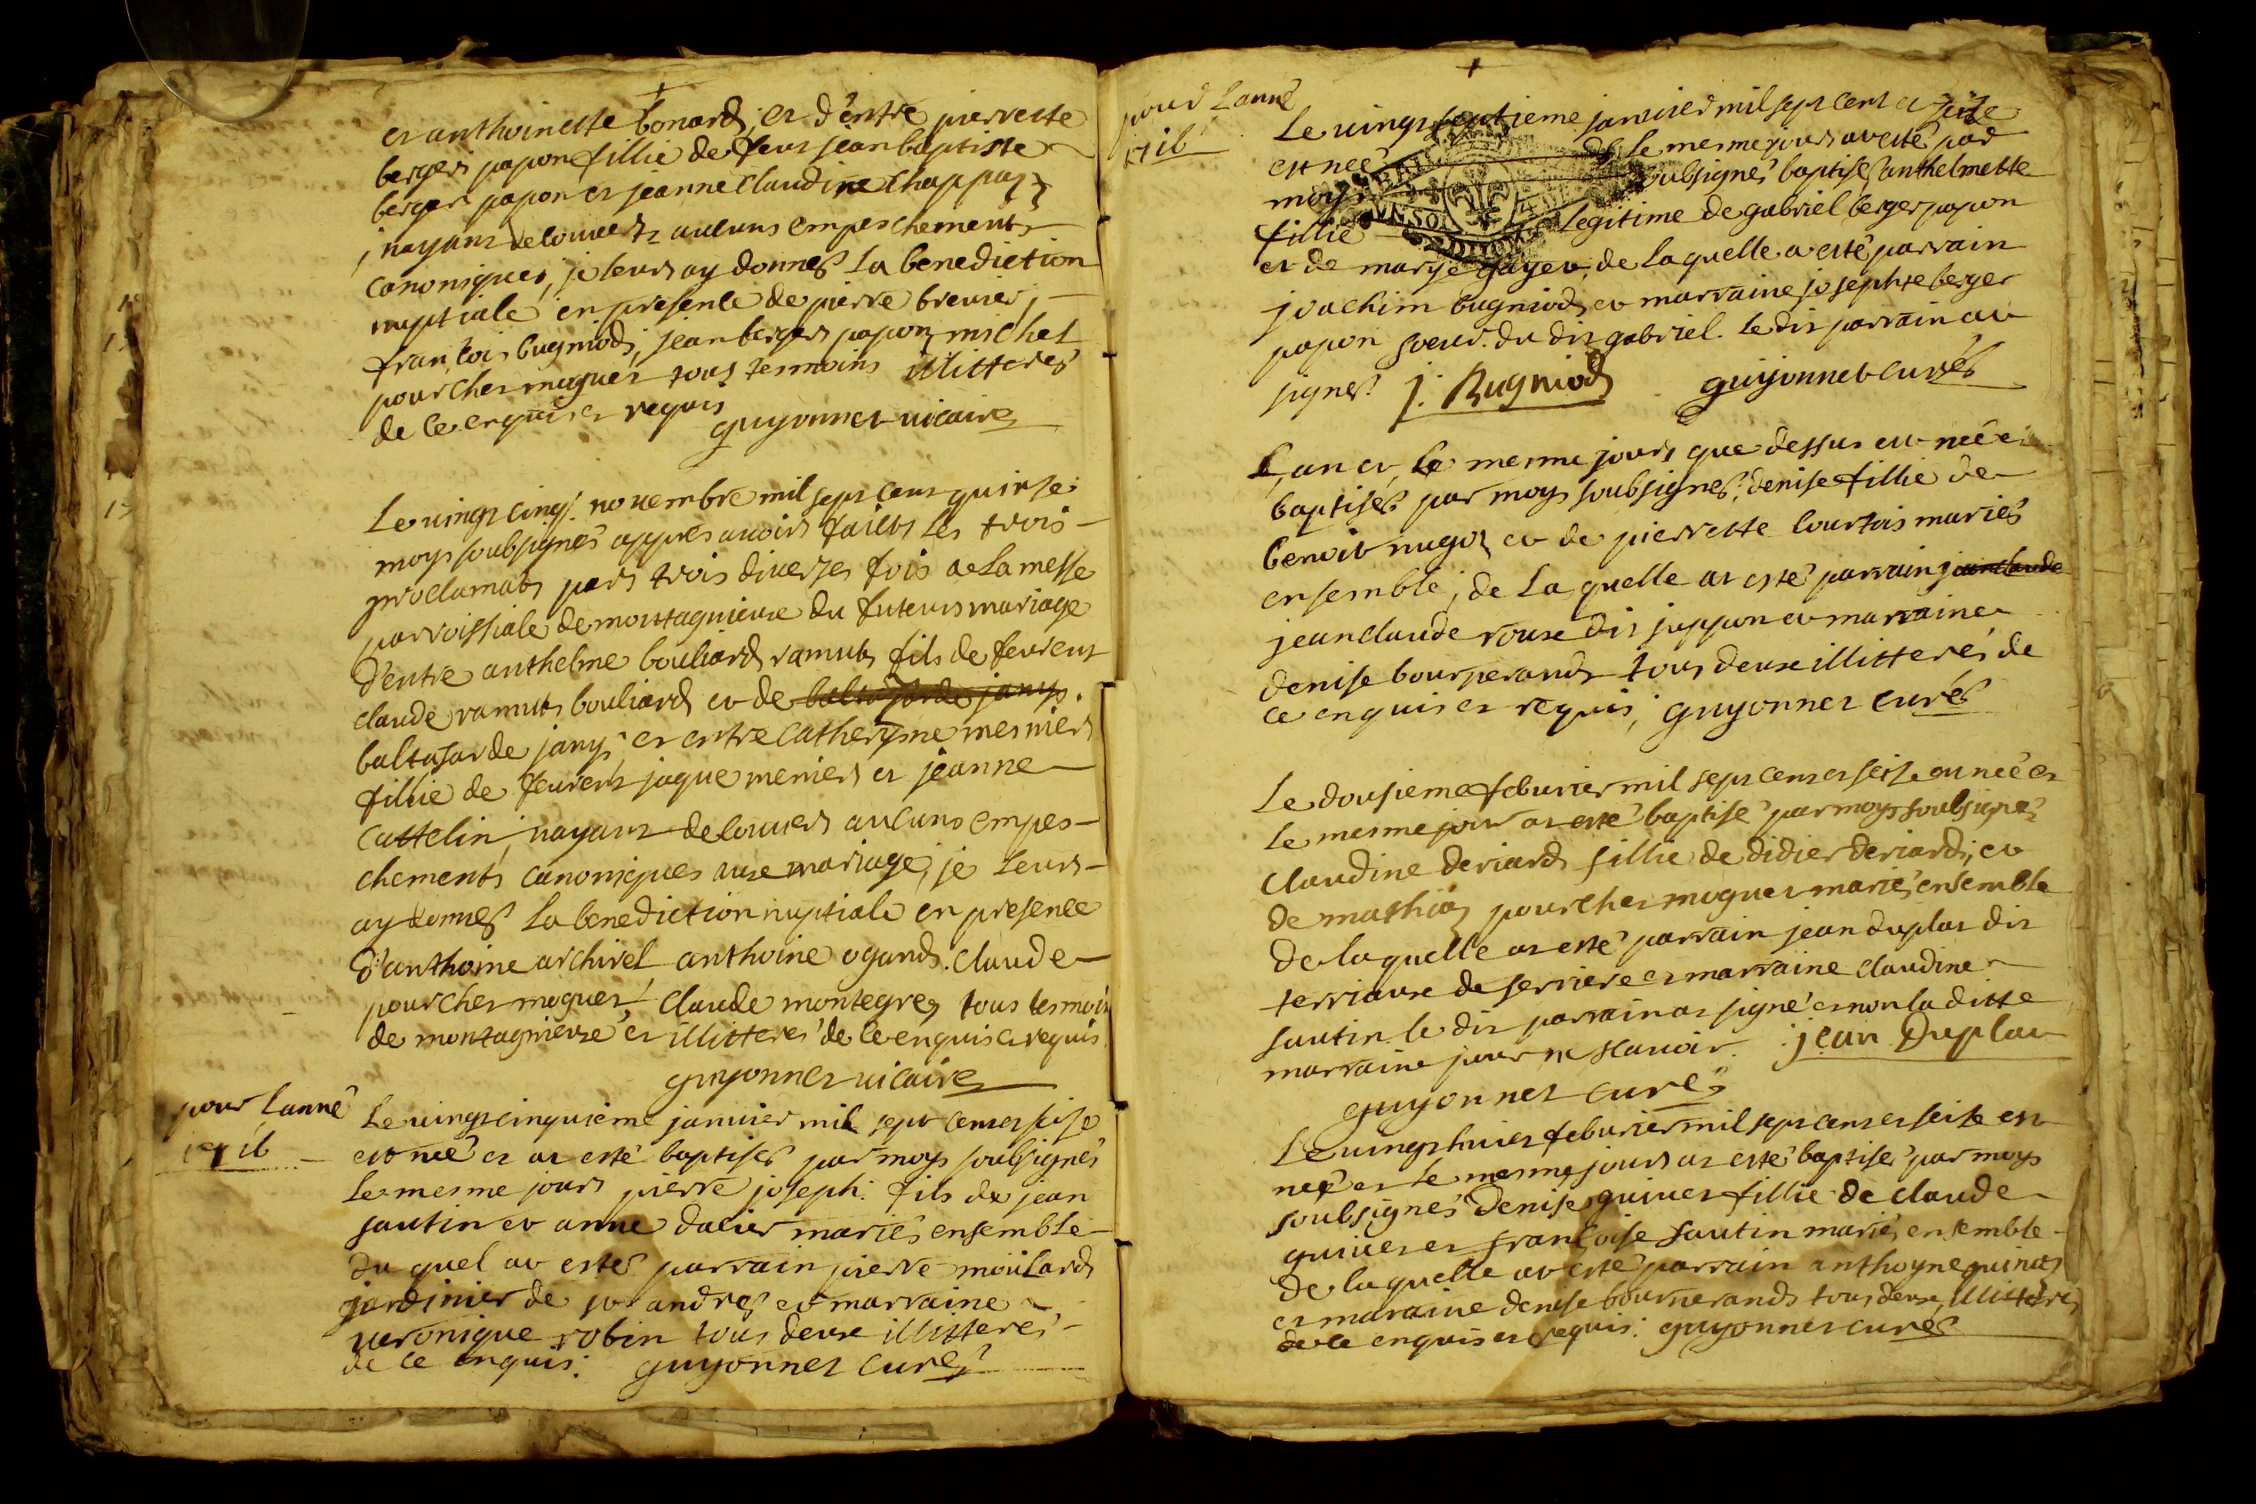 et anthoinette bonard, et d'entre pierrette
berger papon fillie de feus jean baptiste
berger papon et jeanne claudine chappaz
nayant decouverts auluns empeschements
canoniques, je leurs ay donnés la benediction
nuptiale en presence de pierre brevier,
françois bugniod, jean berger papon michel
pourcher muguet tous tesmoins illitterés
de ce enquis et requis
guyonnet vicaire
Le vingt cinq novembre mil sept cent quinze
moys soubsignés appres avoir faicts les trois
proclamats pars trois diverses fois a la messe
parroissiale de montagnieux du futeurs mariage
d'entre anthelme bouliard ramuts fils de feurent
claude ramuts bouliard et de baltasarde jany
baltasarde jany, et entre catheryne mesnier
fillie de feurent jaque menier et jeanne
cattelin, nayant decouvers auluns empes-
chements canoniques aux mariage, je leurs
ay donnés la benediction nuptiale en presence
d'anthoine archirel anthoine ogand. claude
pourcher moguet, claude montegre, tous tesmoin
de montagnieux et illitterés de ce enquis et requis
guyonnet vicaire
pour lanné
1716
Le vingt cinquieme janvier mil sept cent et seise
est neé et at esté baptisés par moys soubsignés
le mesme jours pierre joseph: fils de jean
sautin et anne dalier mariés ensemble
du quel at estés parrain pierre moülard
jardinier de st andrés et marraine
veronique robin tous deux illitterés
de ce enquis: guyonnet curés
pour lanné
1716
Le vingt septieme janvier mil sept cent et seise
est neé le mesme jours at esté par
moys soubsignés baptisé anthelmette
fillie legitime de gabriel berger papon
et de marye gayet, de laquelle at esté parrain
joachim bugniod et marraine josephte berger
papon soeur du dit gabriel. le dit parrain at
signés. j. Bugniod guyonnet curés
L'an et le mesme jours que dessus est neé et
baptisés par moys soubsignés, denise fillie de
benoit nugoz et de pierrette courtois mariés
ensemble, de laquelle at esté parrain jean claude
jean claude roux dit jappon et marraine
denise bournerand tous deux illitterés de
ce enquis et requis, guyonnet curés
Le dousieme feburier mil sept cent et seise est neé et
le mesme jour at esté baptisé par moys soubsignés
claudine deriard fillie de didier deriard, et
de mathia pourcher moguet mariés ensemble
de laquelle at esté parrain jean duplat dit
terriaux de serriere et marraine claudine
sautin. le dit parrain at signé et non la ditte
marraine pour ne scavoir. jean Duplat
guyonnet curés
Le vingt huiet feburier mil sept cent et seise est
neé et le mesme jours at esté baptisés par moys
soubsignés denise guinet fillie de claude
guinet et françoise sautin mariés ensemble
de laquelle at esté parrain anthoyne guinet
et maraine denise bournerand tous deux illitterés
de ce enquis et requis: guyonnet curés